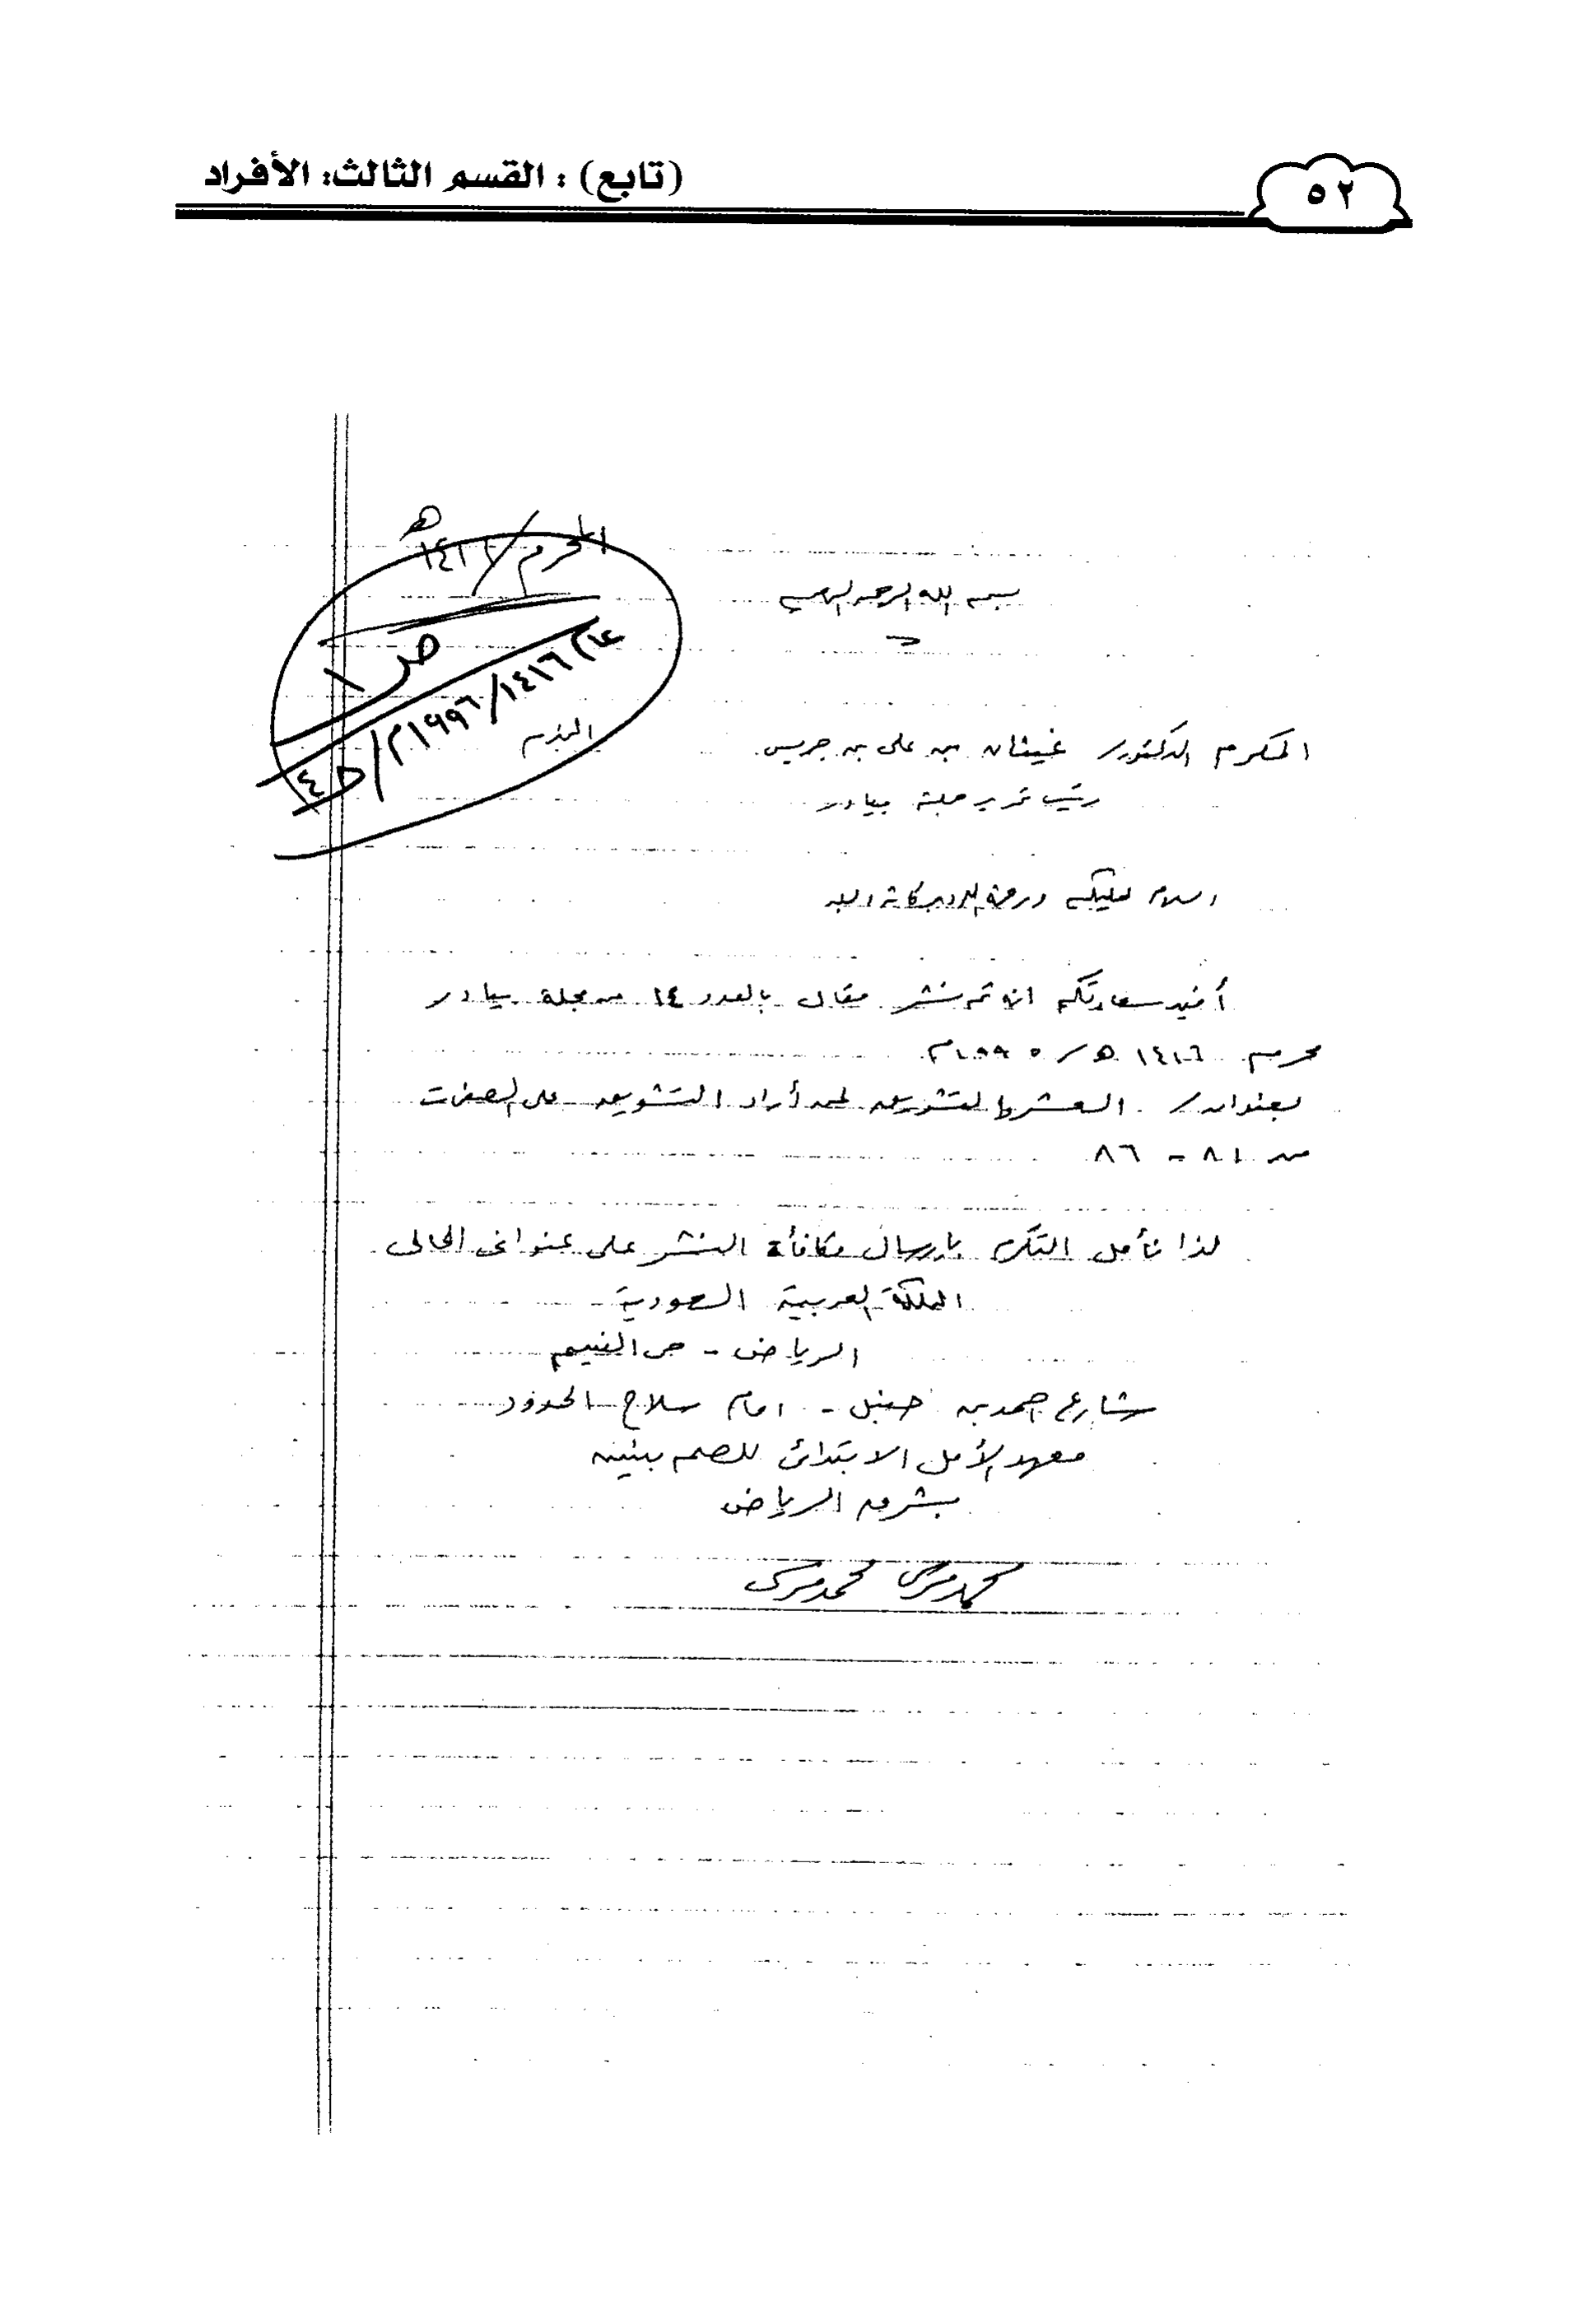 (تابع) : القسم الثالث: الأفراد
٥٢
المحرم / ١٤١٦هـ
ص ١
١٤١٦/١٩٩٦م
بسم الله الرحمن الرحيم
المكرم الدكتور/ غيثان بن على بن جريس
رئيس تحرير مجلة بيادر
السلام عليكم ورحمة الله وبركاته وبعد
أفيد سعادتكم انه تم نشر مقال بالعدد ١٤ من مجلة بيادر
محرم ١٤١٦ هـ / ١٩٩٥م
بعنوان / التشويق لمن أراد التشويق على الصفحات
من ٨١ - ٨٦
لذا نأمل التكرم بارسال مكافأة النشر على عنوانى الحالى
المملكة العربية السعودية
الرياض - حى النسيم
شارع احمد بن حنبل - امام سلاح الحدود
معهد الأمل الابتدائى للصم بنين
بشرق الرياض
محمد مرسى محمد مرسى